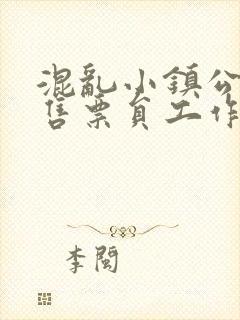 混亂小鎮公
售票員工作
李閩